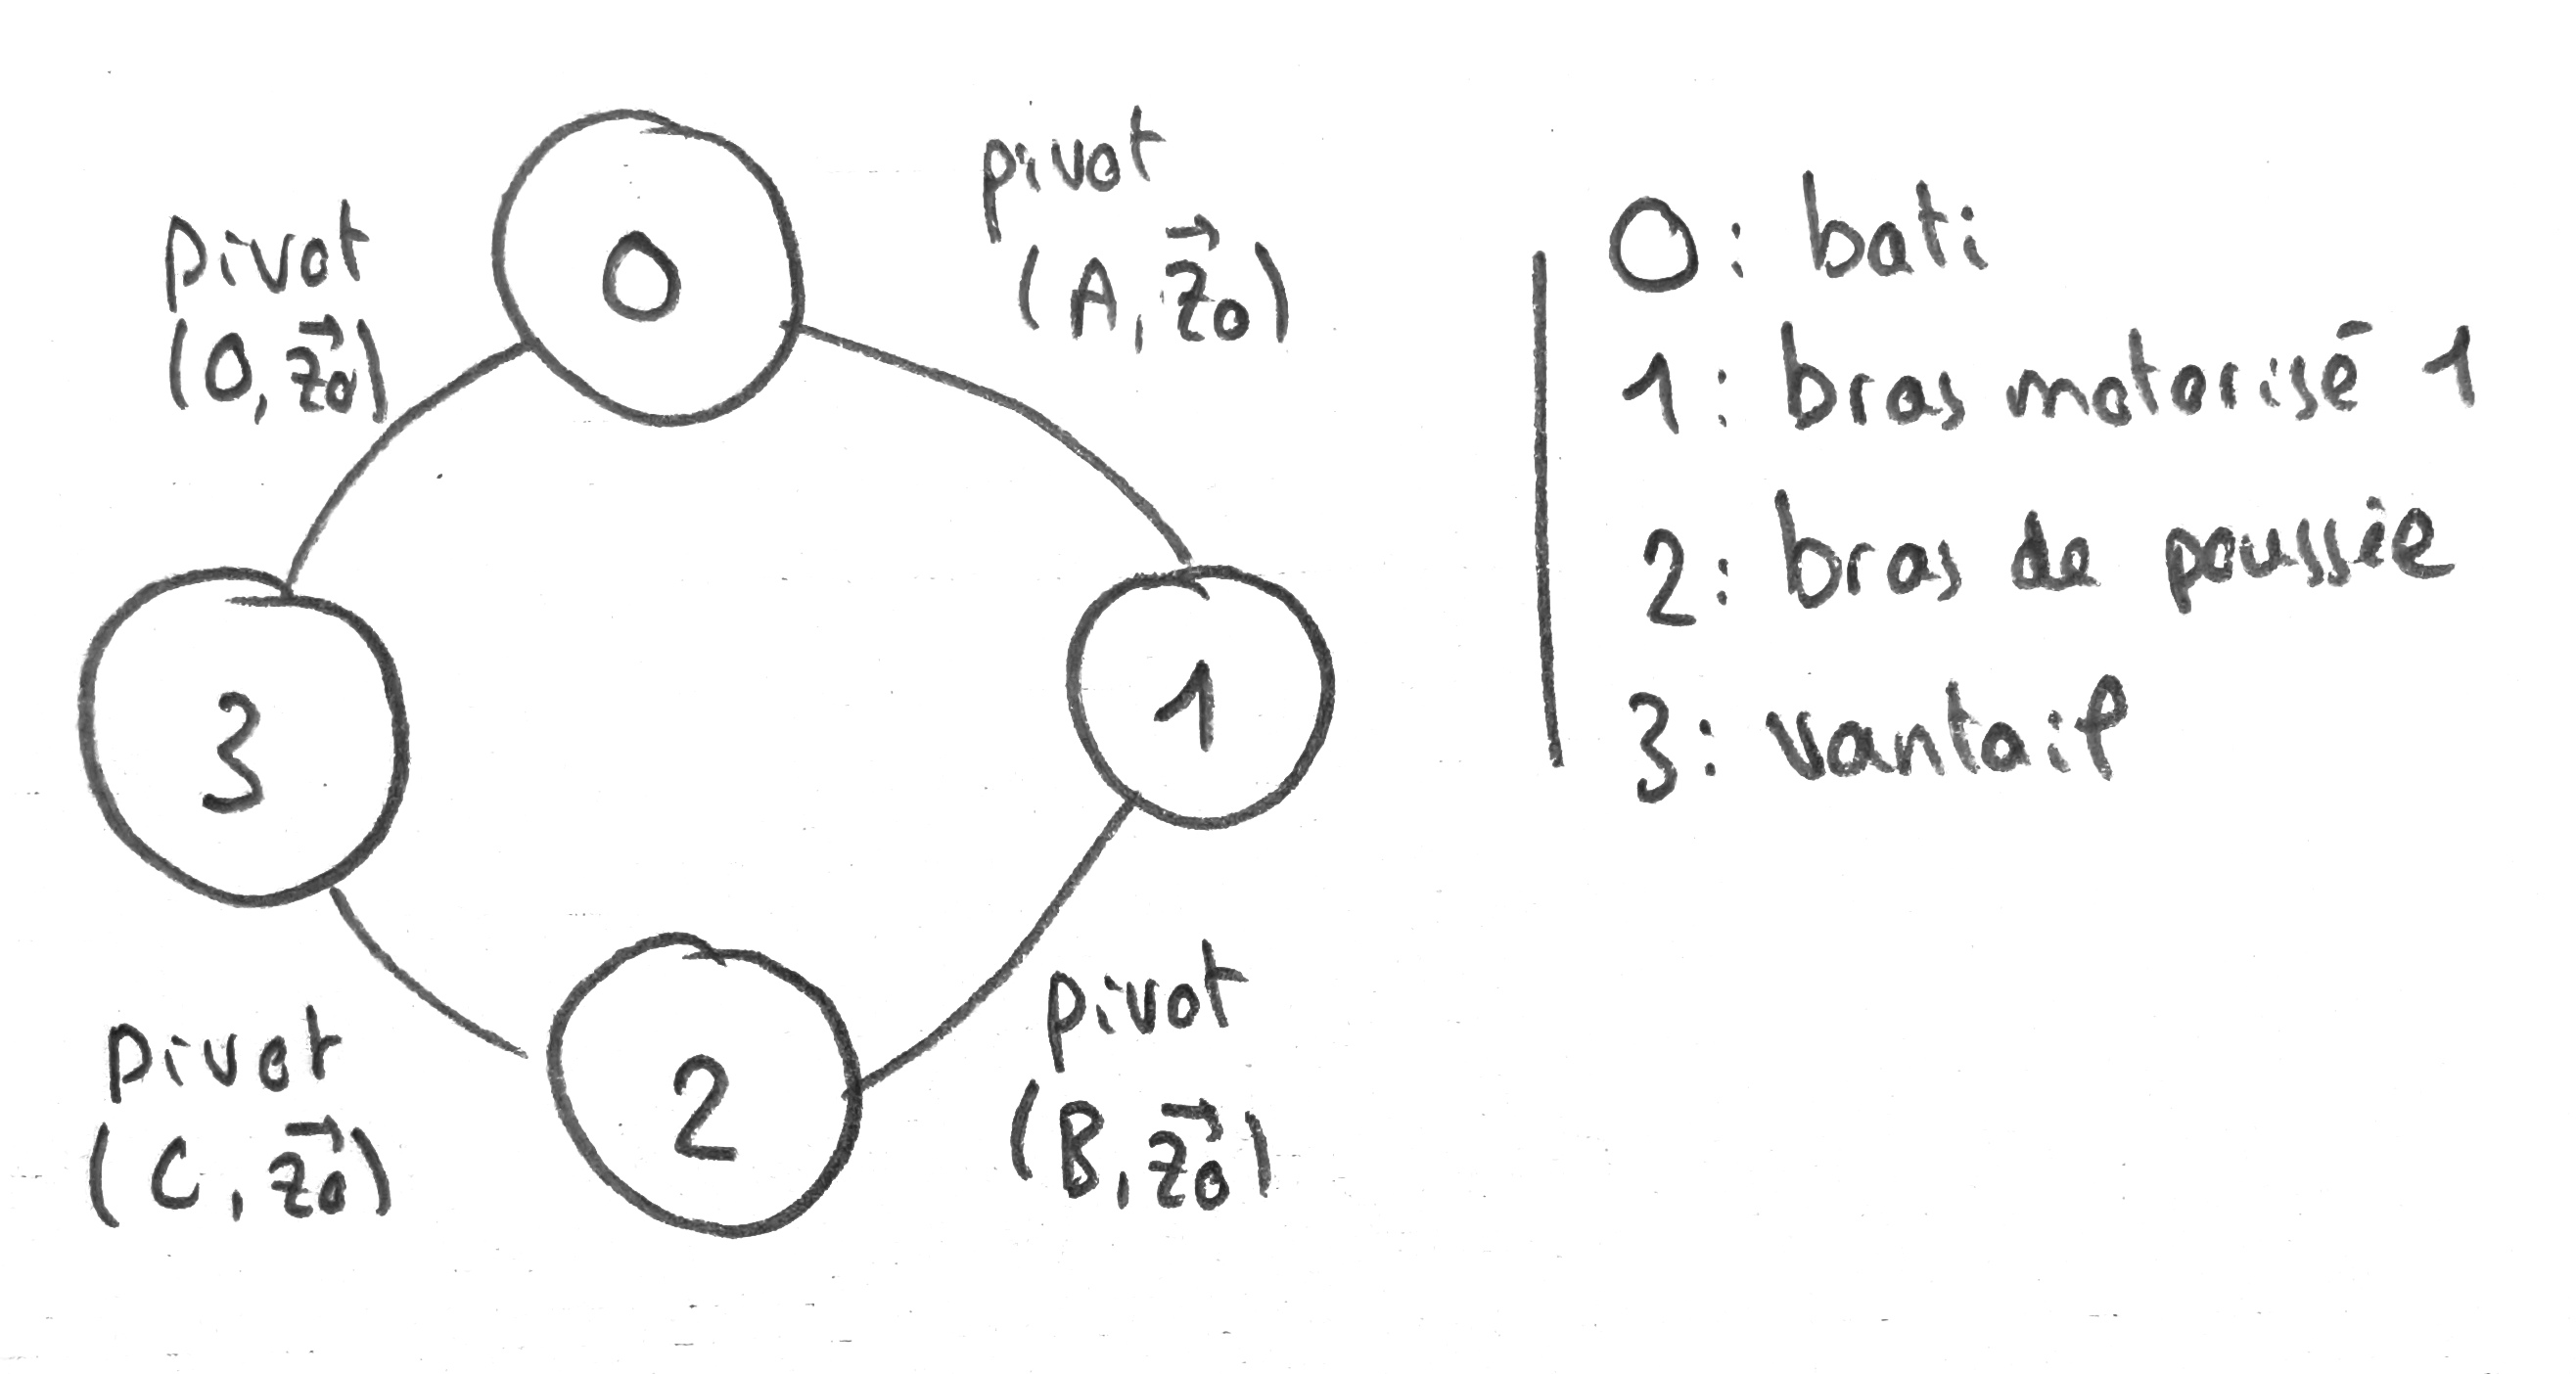 pivot
(A, z₀)
pivot
(O, z₀)
0
3
1
2
pivot
(B, z₀)
pivot
(C, z₀)
0: bati
1: bras motorisé 1
2: bras de poussée
3: vantail